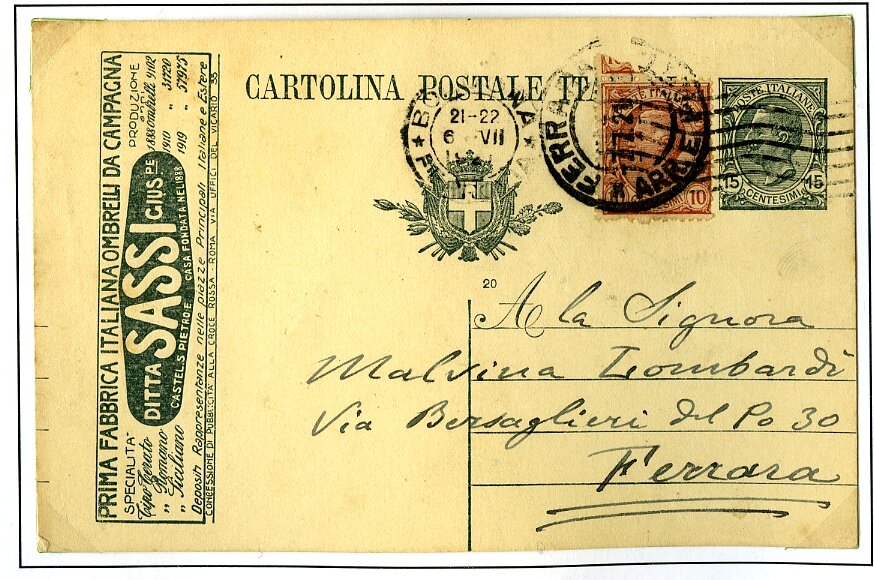 PRIMA FABBRICA ITALIANA OMBRELLI DA CAMPAGNA
SPECIALITA'
Tipo Cerato
" Romano
" Siciliano
DITTA SASSI GIUS.PE
CASTEL S. PIETRO E.
CASA FONDATA NEL 1888
PRODUZIONE
1888 ombrelli 9102
1910 " 31720
1919 " 57975
Depositi Rappresentanze nelle piazze Principali Italiane e Estere
CONCESSIONE DI PUBBLICITÀ ALLA CROCE ROSSA - ROMA VIA UFFICI DEL VICARIO 35
CARTOLINA POSTALE ITA
21-22
6 VII
FERRARA
ARRIVI
10
POSTE ITALIANE
15 15
CENTESIMI
20
A la Signora
Malvina Lombardi
Via Bersaglieri del Po 30
Ferrara